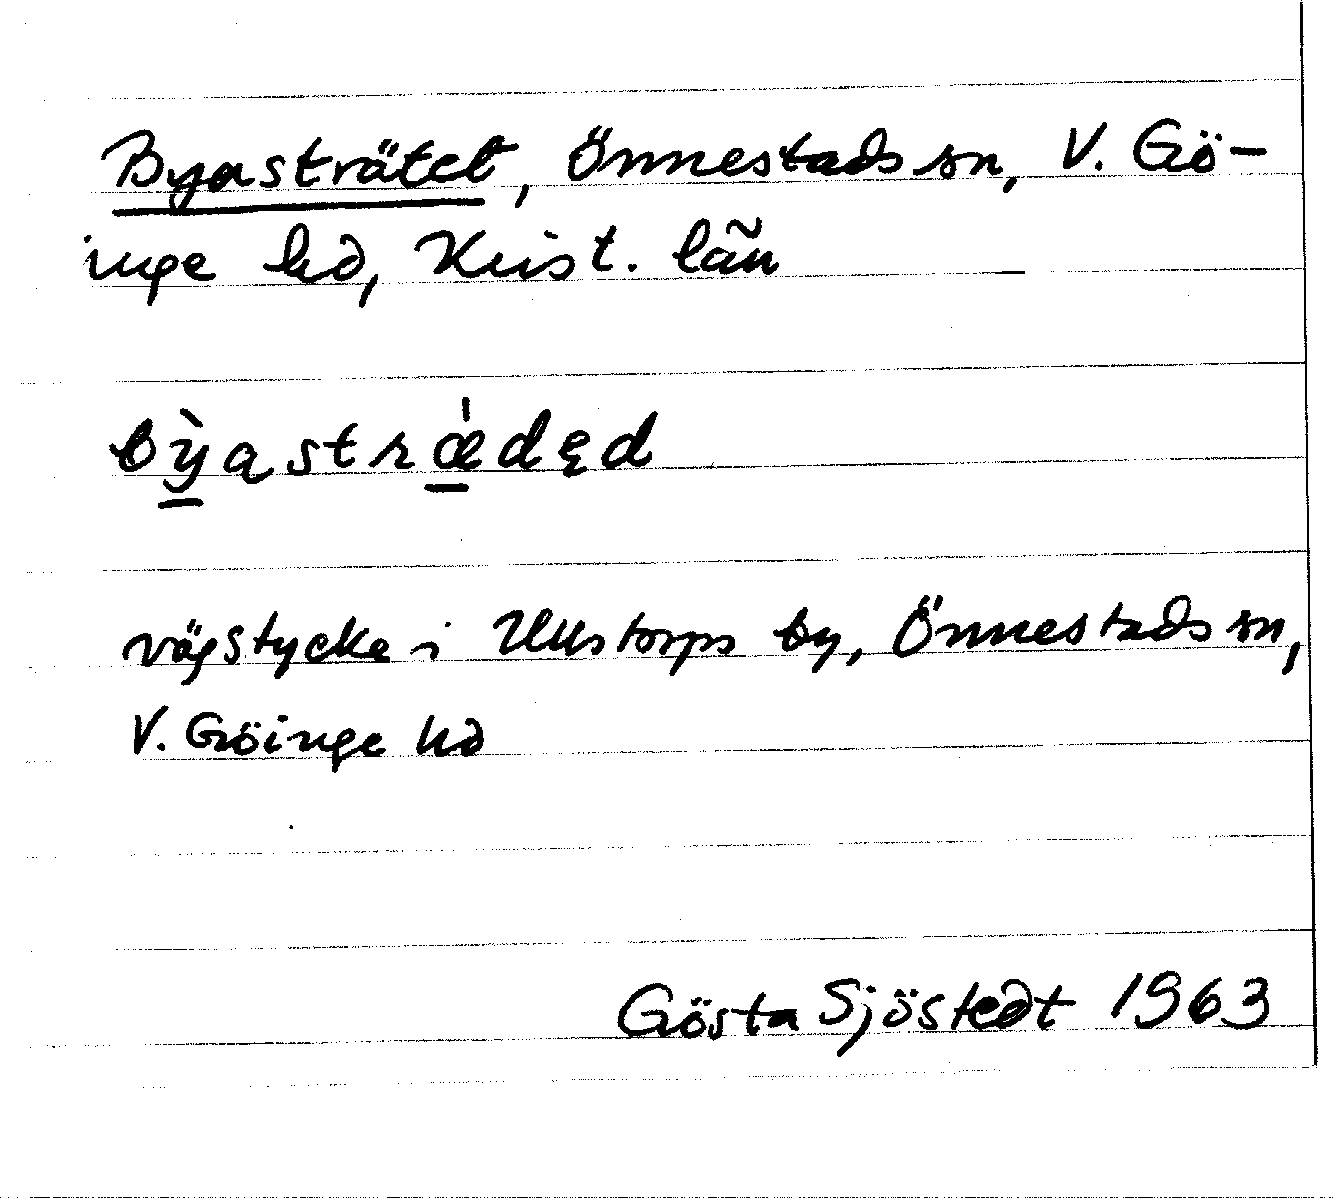 Byasträtet, Önnestads sn, V. Gö-
inge hd, Krist. län
bỳastrǽdęd
vägstycke i Ullstorps by, Önnestads sn,
V. Göinge hd
Gösta Sjöstedt 1963